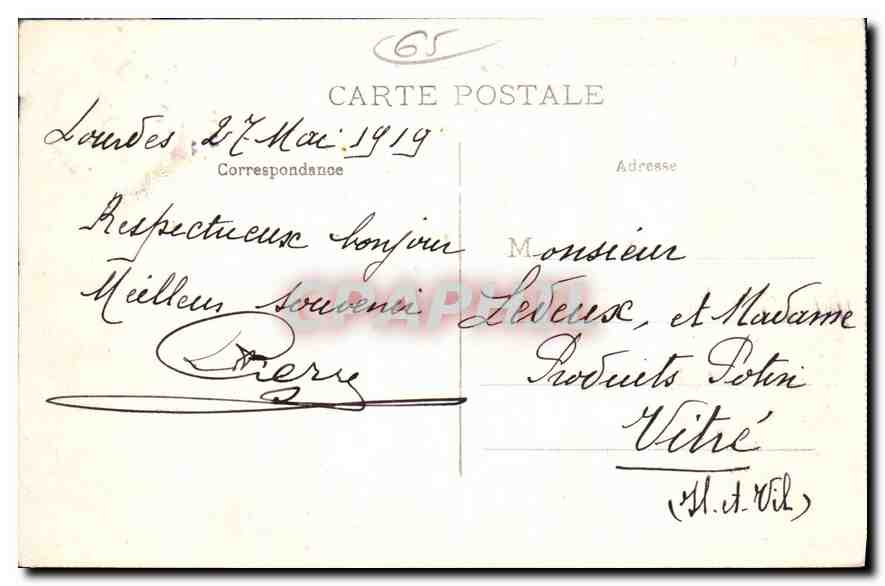 65
CARTE POSTALE
Lourdes 27 Mai 1919
Correspondance
Respectueux bonjour
Meilleur souvenir
Pierre
Adresse
Monsieur
Ledeux, et Madame
Produits Potin
Vitré
(Il. et. Vil.)
CPAPHIL